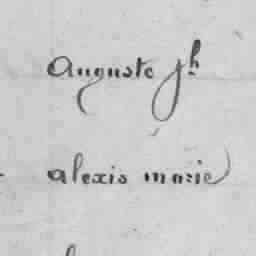 auguste jh
alexis marie